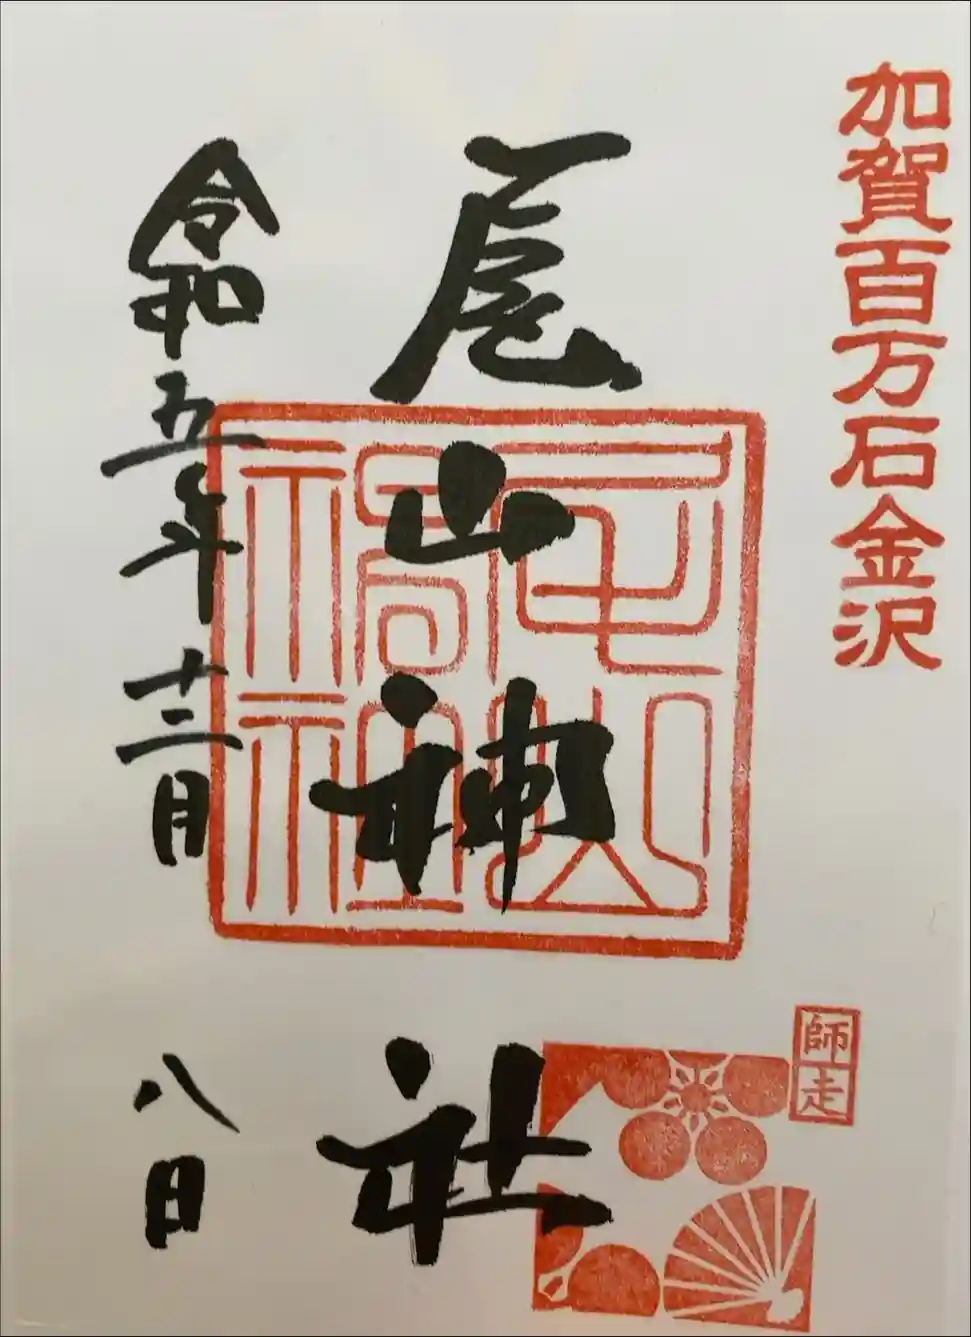 加賀百万石金沢
師走
尾山神社
尾山神社
令和五年十二月八日